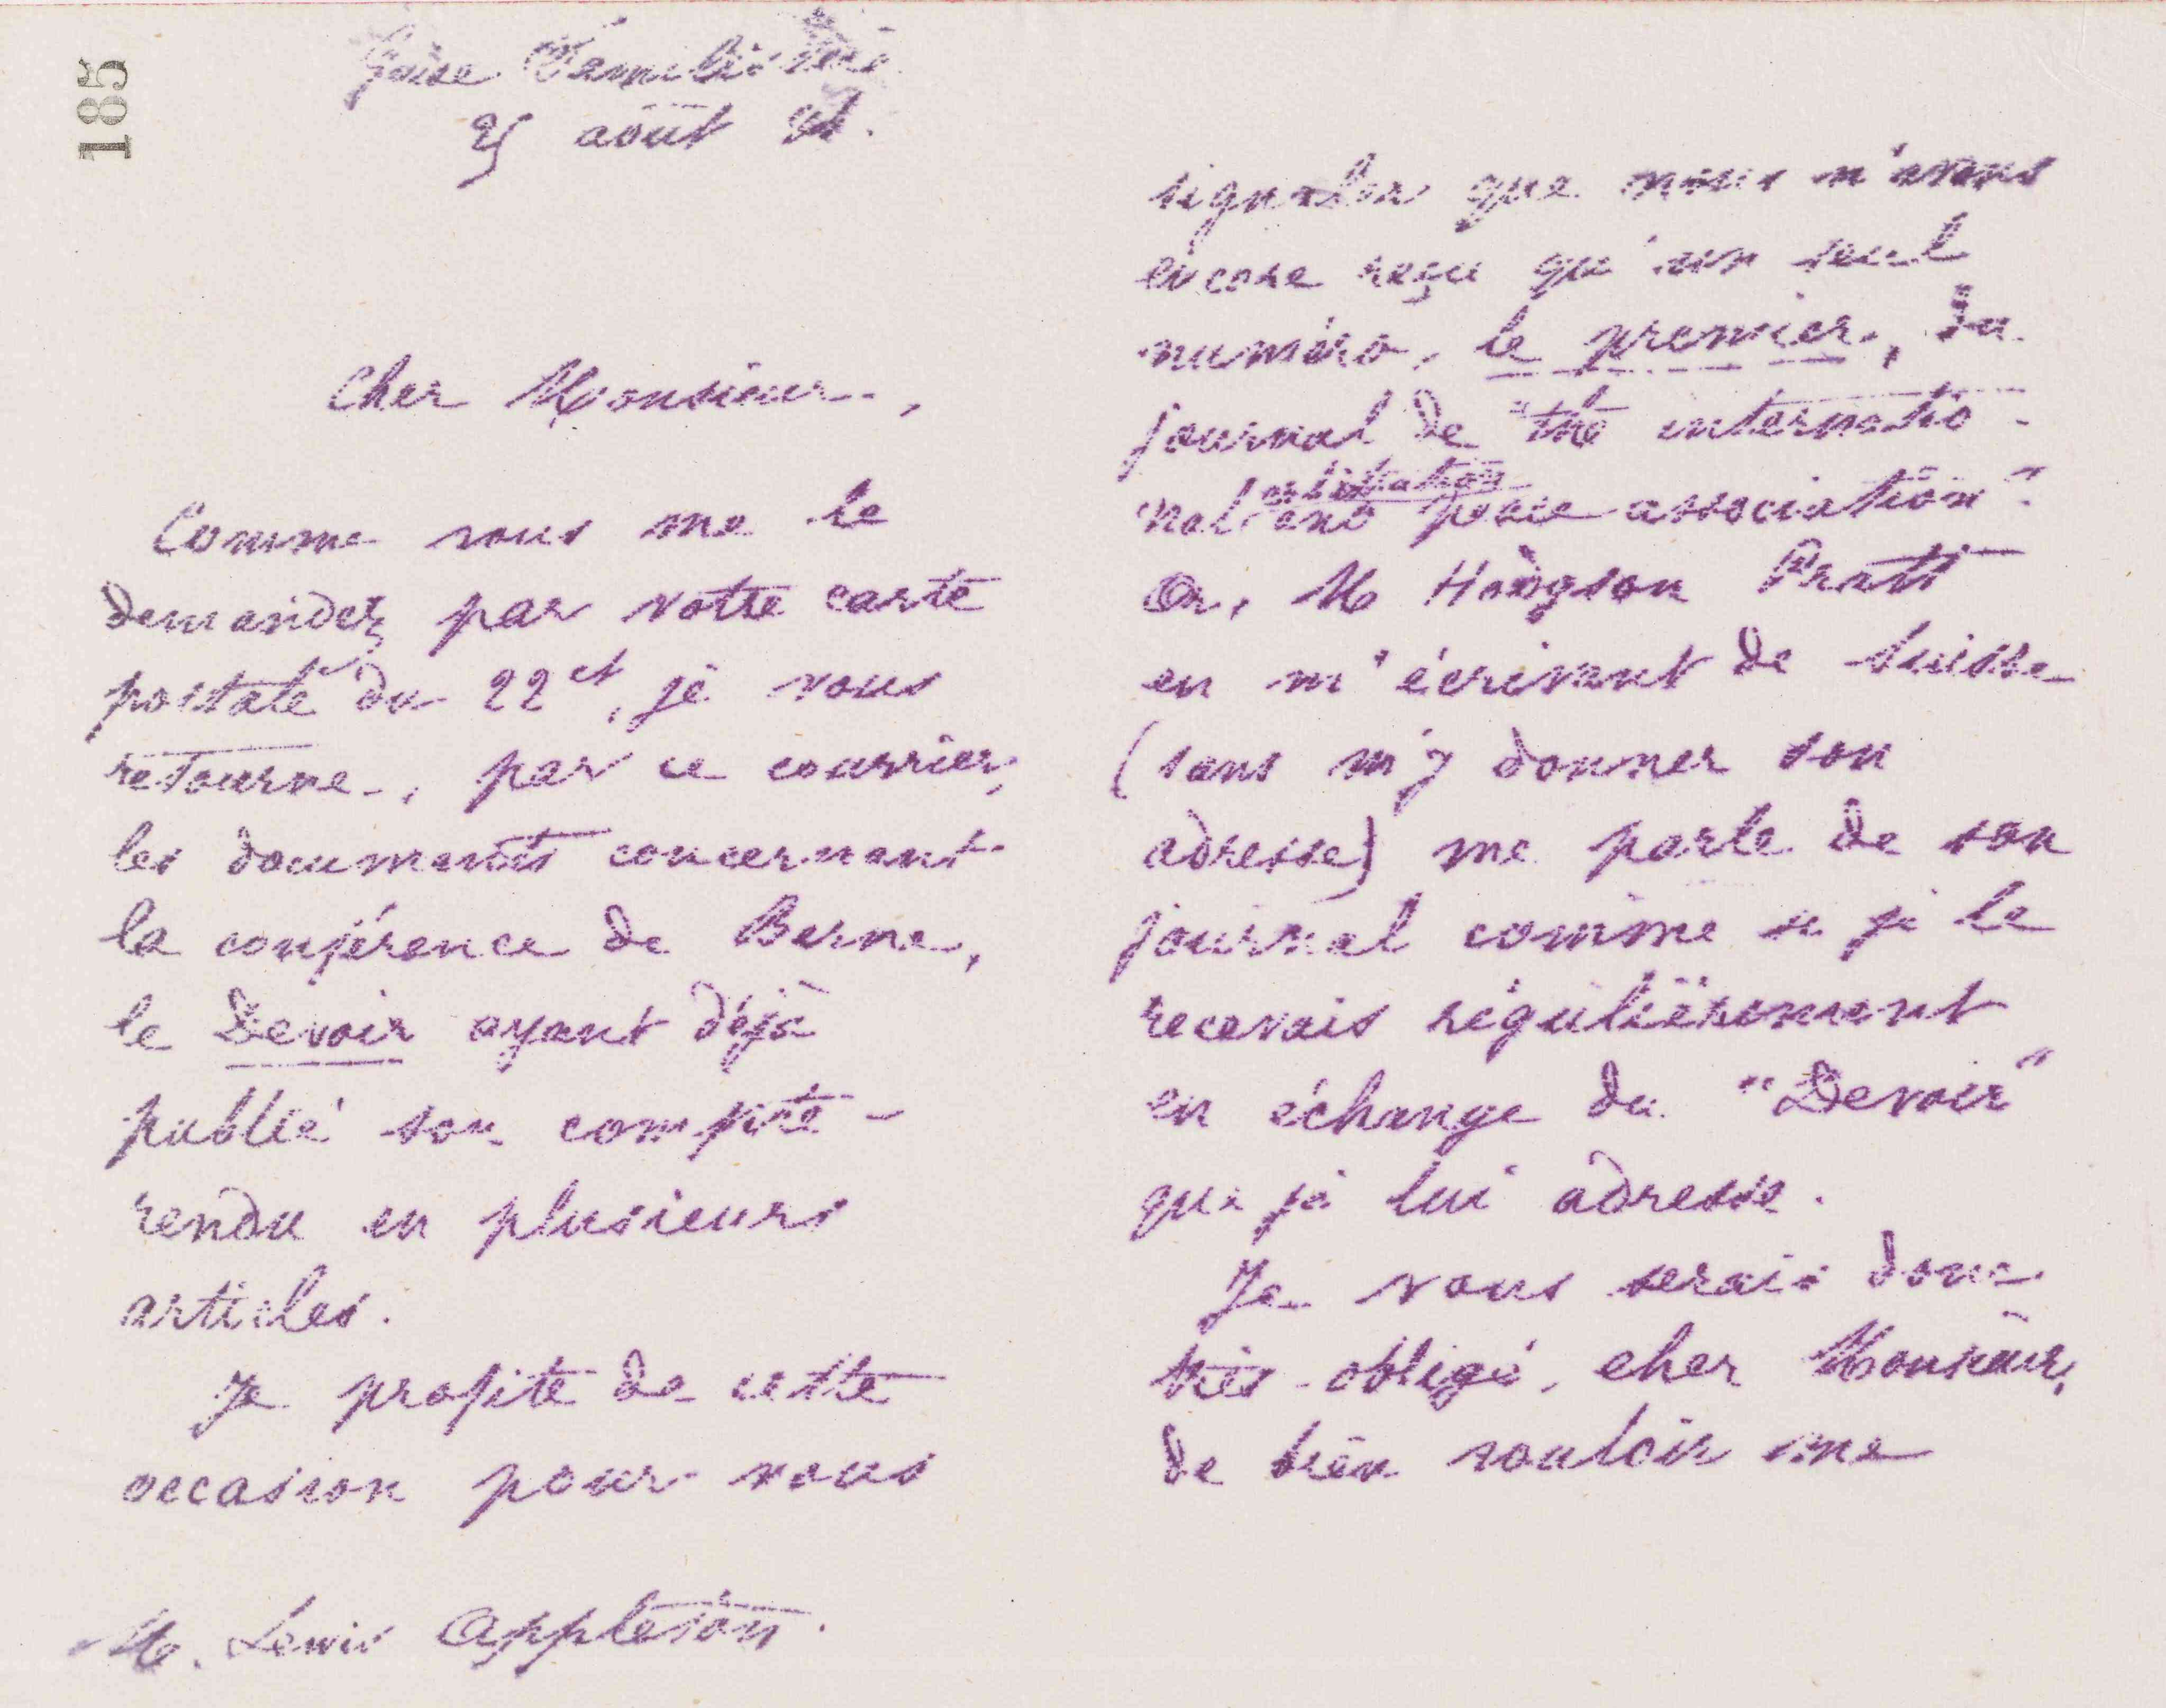 185
Guise Familistère
25 août 84.
Cher Monsieur,
Comme vous me le
demandez par votre carte
postale du 22 ct, je vous
retourne, par ce courrier,
les documents concernant
la conférence de Berne,
le Devoir ayant déjà
publié son compte-
rendu en plusieurs
articles.
Je profite de cette
occasion pour vous
M. Lewis Appleton.
signaler que nous n'avons
encore reçu qu'un seul
numéro, le premier, du
journal de "the internatio-
nal arbitration and peace association".
Or, M Hodgson Pratt
en m'écrivant de Suisse
(sans m'y donner son
adresse) me parle de son
journal comme si je le
recevais régulièrement
en échange du "Devoir"
que je lui adresse.
Je vous serais donc
très-obligé, cher Monsieur,
de bien vouloir me